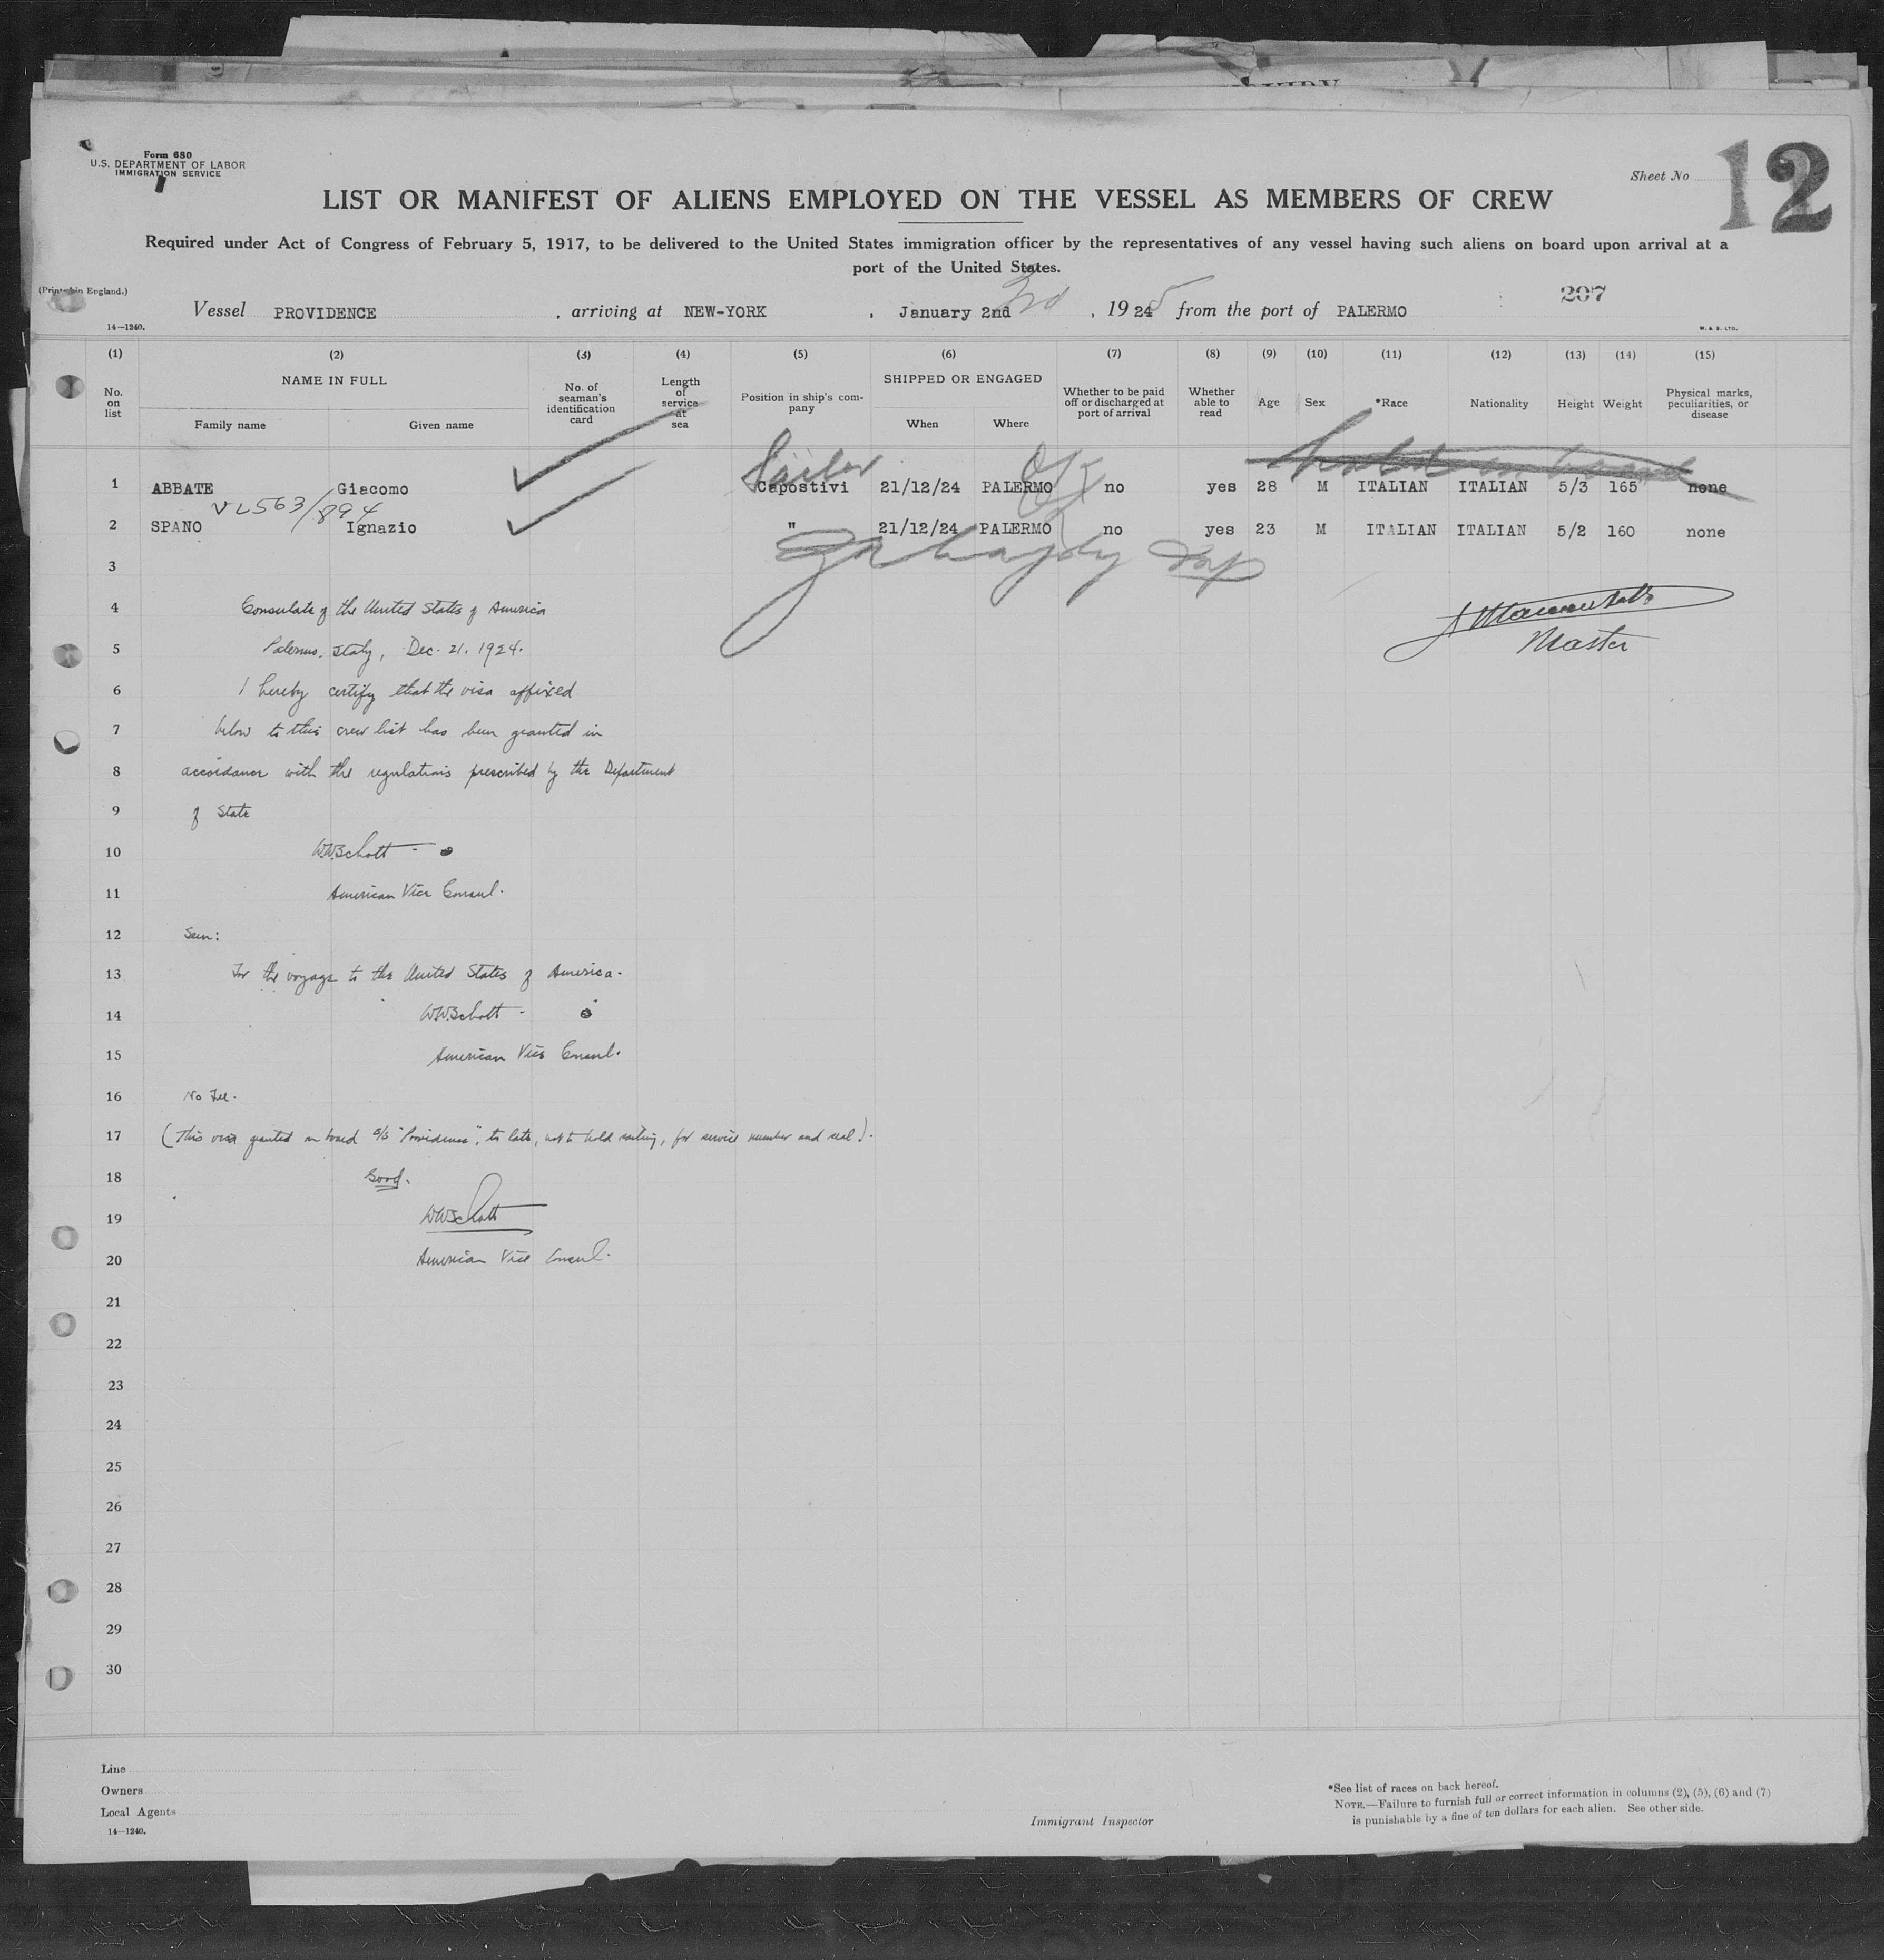 Form 680
U.S. DEPARTMENT OF LABOR
IMMIGRATION SERVICE
Sheet No 12
LIST OR MANIFEST OF ALIENS EMPLOYED ON THE VESSEL AS MEMBERS OF CREW
Required under Act of Congress of February 5, 1917, to be delivered to the United States immigration officer by the representatives of any vessel having such aliens on board upon arrival at a
port of the United States.
(Printed in England.)
207
Vessel PROVIDENCE , arriving at NEW-YORK , January 2nd 3rd , 1924 5 from the port of PALERMO
14—1240.
W. & S. LTD.
(1) (2) (3) (4) (5) (6) (7) (8) (9) (10) (11) (12) (13) (14) (15)
No. on list NAME IN FULL Family name Given name No. of seaman's identification card Length of service at sea Position in ship's company SHIPPED OR ENGAGED When Where Whether to be paid off or discharged at port of arrival Whether able to read Age Sex *Race Nationality Height Weight Physical marks, peculiarities, or disease
Sailor
1 ABBATE Giacomo Capostivi 21/12/24 PALERMO no yes 28 M ITALIAN ITALIAN 5/3 165 none
VL563/894
2 SPANO Ignazio " 21/12/24 PALERMO no yes 23 M ITALIAN ITALIAN 5/2 160 none
3
4 Consulate of the United States of America
5 Palermo, Italy, Dec. 21. 1924.
Master
6 I hereby certify that the visa affixed
7 below to this crew list has been granted in
8 accordance with the regulations prescribed by the Department
9 of State
10 W.W.Schott
11 American Vice Consul.
12 Seen:
13 For the voyage to the United States of America.
14 W.W.Schott
15 American Vice Consul.
16 No Fee.
17 (This visa granted on board s/s "Providence", to late, not to hold sailing, for service number and seal).
18 Good.
19 WWSchott
20 American Vice Consul.
21
22
23
24
25
26
27
28
29
30
Line
Owners
Local Agents
14—1240.
Immigrant Inspector
*See list of races on back hereof.
NOTE.—Failure to furnish full or correct information in columns (2), (5), (6) and (7)
is punishable by a fine of ten dollars for each alien. See other side.